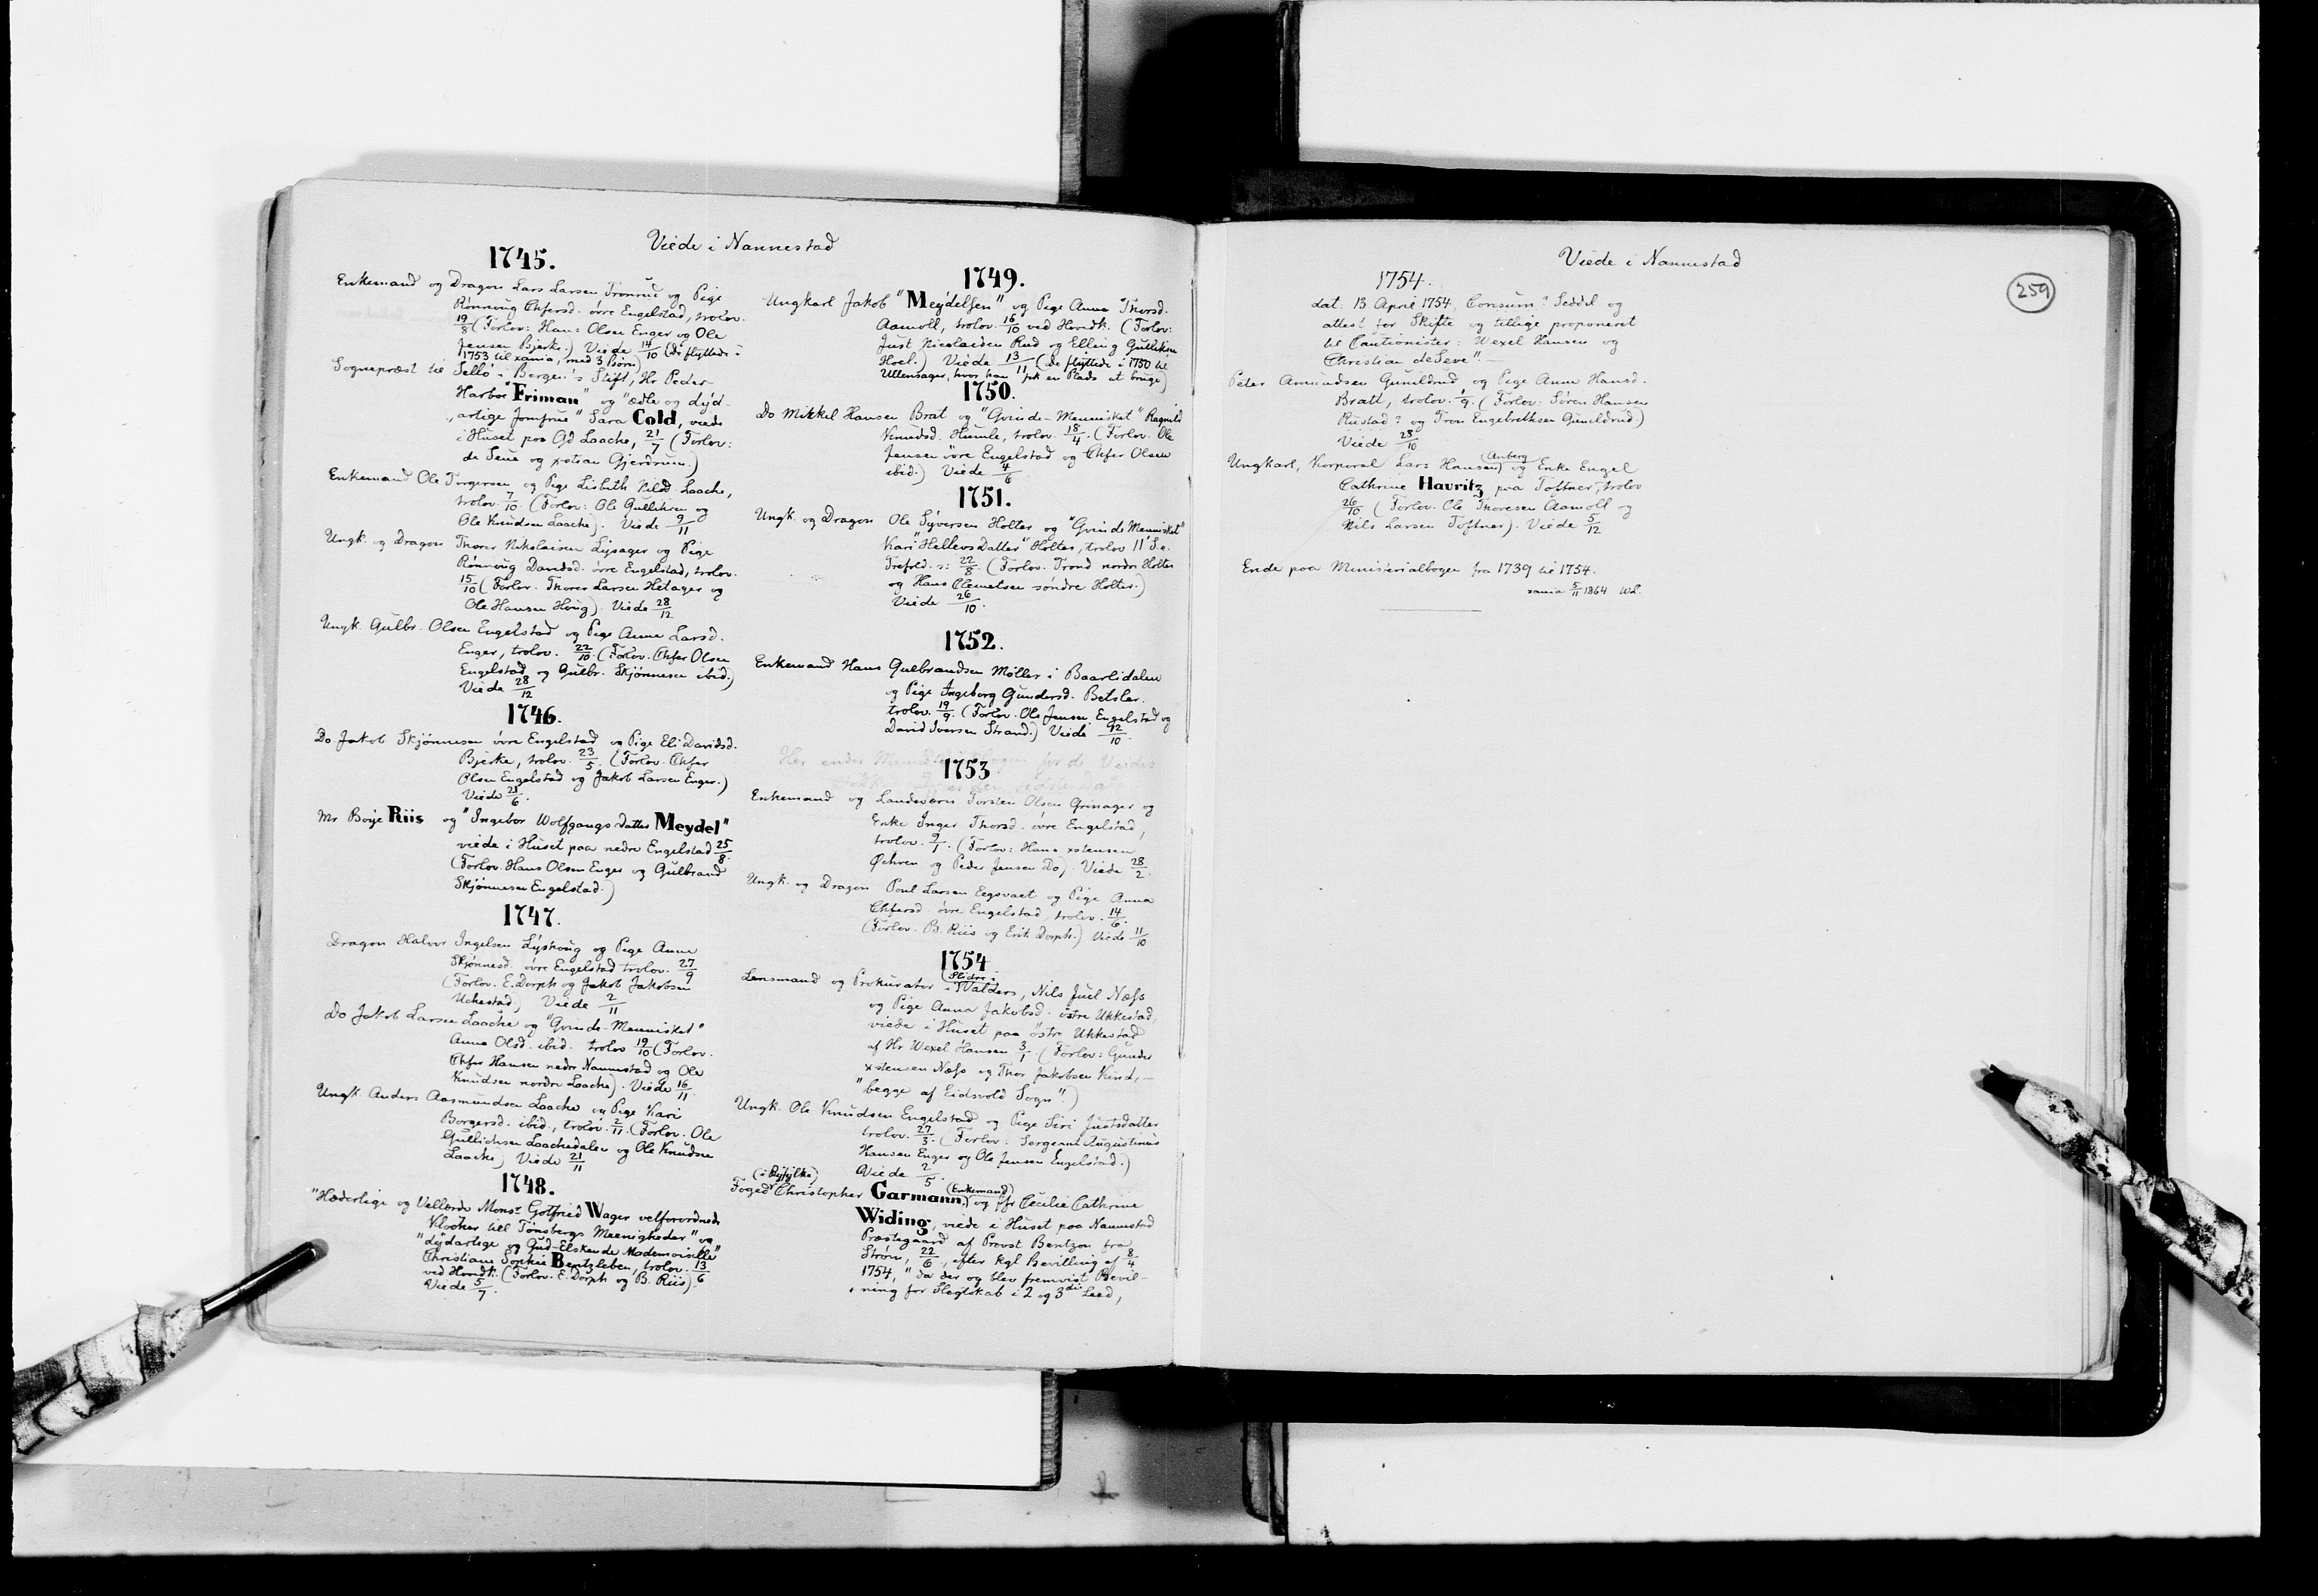 Viede i Nannestad
1745.
Enkemand og Dragon Lars Larsen Tronrue og Pige
Rønnoug Chfersd. øvre Engelstad, trolov.
19/8 (Forlov: Hans Olsen Enger og Ole
Jensen Bjerke.) Viede 14/10 (De flyttede i
1753 til xania, med 3 Børn)
Sognepræst til Sellö i Bergen's Stift, Hr Peder
Harboe "Friman" og "ædle og dyd-
"artige Jomfrue" Sara Cold, viede
i Huset paa Gd Laache, 21/7 (Forlov:
de Seue og xstian Gjerdrum.)
Enkemand Ole Torgersen og Pige Lisbeth Nilsd. Laache,
trolov. 7/10 (Forlov: Ole Gulliksen og
Ole Knudsen Laache). Viede 9/11
Ungk. og Dragon Thores Nikolaisen Lysager og Pige
Rønnoug Davidsd. øvre Engelstad, trolov.
15/10 (Forlov. Thores Larsen Hetager og
Ole Hansen Houg). Viede 28/12
Ungk. Gulbr. Olsen Engelstad og Pige Anne Larsd.
Enger, trolov. 22/10 (Forlov. Chfer Olsen
Engelstad og Gulbr. Skjönnesen ibid.)
Viede 28/12
1746.
Do Jakob Skjönnesen øvre Engelstad og Pige Eli Davidsd.
Bjerke, trolov. 23/5. (Forlov. Chfer
Olsen Engelstad og Jakob Larsen Enger.)
Viede 21/6.
Mr Boye Riis og "Ingebor Wolfgangs Datter Meydel"
viede i Huset paa nedre Engelstad 25/8.
(Forlov. Hans Olsen Enger og Gulbrand
Skjönnesen Engelstad.)
1747.
Dragon Halvor Ingelsen Lyshoug og Pige Anne
Skjönnesd. øvre Engelstad trolov. 27/9
(Forlov. E. Dorph og Jakob Jakobsen
Uckestad) Viede 2/11
Do Jakob Larsen Laache og "Qvinde-Mennisket"
Anne Olsd. ibid. trolov 19/10 (Forlov.
Chfer Hansen nedre Nannestad og Ole
Knudsen nordre Laache). Viede 16/11.
Ungk. Anders Aasmundsen Laache og Pige Kari
Borgersd. ibid., trolov. 2/11. (Forlov. Ole
Gullichsen Laachedalen og Ole Knudsen
Laache) Viede 21/11
1748.
"Hæderlige og Vellærde Monsr Gotfried Wager velforordnede
Klocker till Tønsbergs Meenigheder" og
"dydartige og Gud-Elskende Mademoiselle"
Christiane Sophie Bentzleben, trolov. 13/6
ved Hovdk. (Forlov. E. Dorph og B. Riis).
Viede 5/7.
1749.
Ungkarl Jakob "Meydelsen" og Pige Anne Thorsd.
Aamoll, trolov. 16/10 ved Hovdk. (Forlov:
Just Nicolaisen Rud og Elling Gulliksen
Hoel.) Viede 13/11 (De flyttede i 1750 til
Ullensager, hvor han fik en Plads at bruge)
1750.
Do Mikkel Hansen Brat og "Qvinde-Mennisket" Ragnild
Knudsd. Humle, trolov. 18/4. (Forlov. Ole
Jensen øvre Engelstad og Chfer Olsen
ibid.) Viede 4/6.
1751.
Ungk. og Dragon Ole Syversen Holter og "Qvinde Mennisket"
Kari "HellevsDatter" Holter, trolov 11 S. e.
Trefold. ɔ: 22/8 (Forlov. Trond nordre Holter
og Hans Clemetsen søndre Holter.)
Viede 26/10.
1752.
Enkemand Hans Gulbrandsen Møller i Baarlidalen
og Pige Ingeborg Gundersd. Betsler.
trolov. 19/9. (Forlov. Ole Jensen Engelstad og
David Iversen Strand.) Viede 12/10.
1753
Enkemand og Landeværn Torsten Olsen Grinager og
Enke Inger Thorsd. øvre Engelstad,
trolov. 9/1. (Forlov: Hans xstensen
Øchren og Peder Jensen Do). Viede 28/2.
Ungk. og Dragon Poul Larsen Eegsvaet og Pige Anna
Chfersd øvre Engelstad, trolov. 14/6.
(Forlov. B. Riis og Erik Dorph.) Viede 11/10
1754
(Slidre i
Lensmand og Prokurator i Walders, Nils Juel Næss
og Pige Anna Jakobsd. østre Ukkestad,
viede i Huset paa østre Ukkestad
af Hr Wexel Hansen 3/1. (Forlov: Gunder
xstensen Næss og Thor Jakobsen Kind,—
"begge af Eidsvold Sogn".)
Ungk. Ole Knudsen Engelstad og Pige Siri Justsdatter
trolov. 27/3. (Forlov: Sergeant Augustinus
Hansen Enger og Ole Jensen Engelstad.)
Viede 2/5.
(i Ryfylke) (Enkemand)
Foged Christopher Garmann, og Jfr Cecilie Cathrine
Widing, viede i Huset paa Nannestad
Præstegaard af Provst Bentzon fra
Strøm, 22/6, efter Kgl Bevilling af 8/4
1754, "da der og blev fremvist Bevil-
ning for Slegtskab i 2 og 3die Leed,
Viede i Nannestad
259
1754.
dat. 13 April 1754, Consum? Seddel og
attest for Skifte og tillige proponeret
til Cautionister: Wexel Hansen og
Christian de Seve".—
Peter Amundsen Gunildrud og Pige Anne Hansd.
Bratt, trolov. 1/9. (Forlov: Søren Hansen
Rustad? og Tron Engebrethsen Gunildrud.)
Viede 28/10
(Anberg
Ungkarl, Korporal Lars Hansen) og Enke Engel
Cathrine Havritz paa Toftner, trolov
26/10 (Forlov. Ole Thoresen Aamoll og
Nils Larsen Toftner). Viede 5/12
Ende paa Ministerialbogen fra 1739 til 1754.
xania 5/11 1864 Wl.